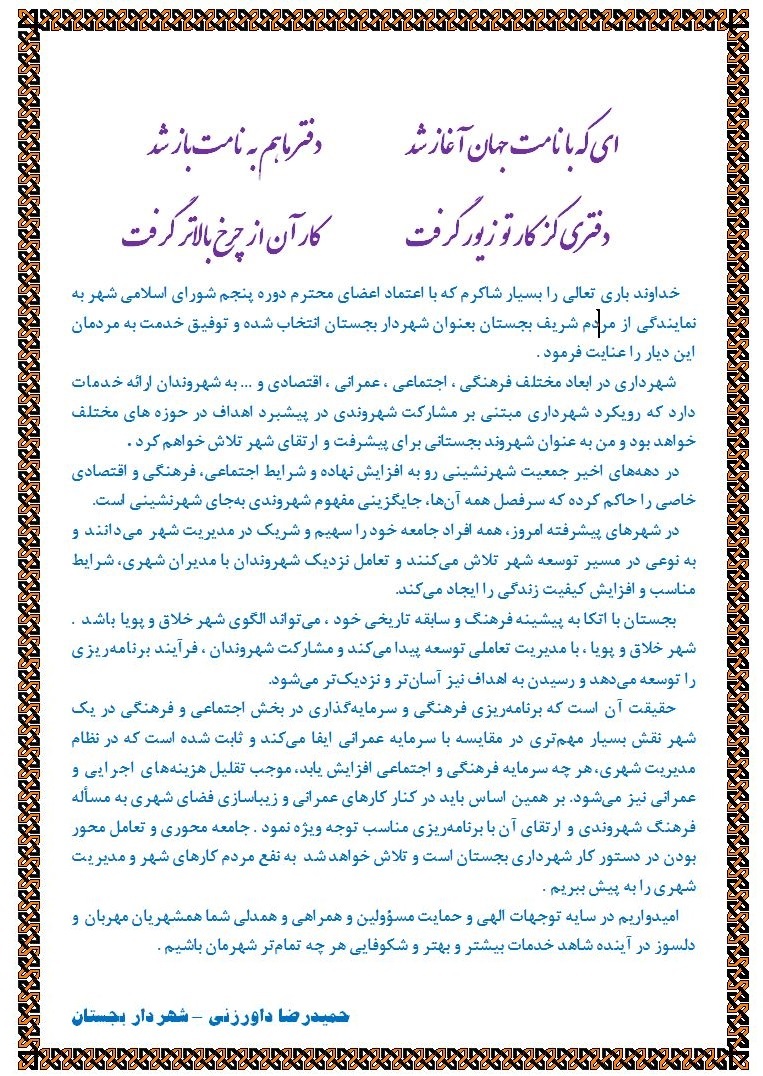 ای که با نامت جهان آغاز شد دفتر ما هم به نامت باز شد
دفتری کز کار تو زیور گرفت کار آن از چرخ بالاتر گرفت
خداوند باری تعالی را بسیار شاکرم که با اعتماد اعضای محترم دوره پنجم شورای اسلامی شهر به
نمایندگی از مردم شریف بجستان بعنوان شهردار بجستان انتخاب شده و توفیق خدمت به مردمان
این دیار را عنایت فرمود .
شهرداری در ابعاد مختلف فرهنگی ، اجتماعی ، عمرانی ، اقتصادی و ... به شهروندان ارائه خدمات
دارد که رویکرد شهرداری مبتنی بر مشارکت شهروندی در پیشبرد اهداف در حوزه های مختلف
خواهد بود و من به عنوان شهروند بجستانی برای پیشرفت و ارتقای شهر تلاش خواهم کرد .
در دهه‌های اخیر جمعیت شهرنشینی رو به افزایش نهاده و شرایط اجتماعی، فرهنگی و اقتصادی
خاصی را حاکم کرده که سرفصل همه آن‌ها، جایگزینی مفهوم شهروندی به‌جای شهرنشینی است.
در شهرهای پیشرفته امروز، همه افراد جامعه خود را سهیم و شریک در مدیریت شهر می‌دانند و
به نوعی در مسیر توسعه شهر تلاش می‌کنند و تعامل نزدیک شهروندان با مدیران شهری، شرایط
مناسب و افزایش کیفیت زندگی را ایجاد می‌کند.
بجستان با اتکا به پیشینه فرهنگ و سابقه تاریخی خود ، می‌تواند الگوی شهر خلاق و پویا باشد .
شهر خلاق و پویا ، با مدیریت تعاملی توسعه پیدا می‌کند و مشارکت شهروندان ، فرآیند برنامه‌ریزی
را توسعه می‌دهد و رسیدن به اهداف نیز آسان‌تر و نزدیک‌تر می‌شود.
حقیقت آن است که برنامه‌ریزی فرهنگی و سرمایه‌گذاری در بخش اجتماعی و فرهنگی در یک
شهر نقش بسیار مهم‌تری در مقایسه با سرمایه عمرانی ایفا می‌کند و ثابت شده است که در نظام
مدیریت شهری، هر چه سرمایه فرهنگی و اجتماعی افزایش یابد، موجب تقلیل هزینه‌های اجرایی و
عمرانی نیز می‌شود. بر همین اساس باید در کنار کارهای عمرانی و زیباسازی فضای شهری به مسأله
فرهنگ شهروندی و ارتقای آن با برنامه‌ریزی مناسب توجه ویژه نمود . جامعه محوری و تعامل محور
بودن در دستور کار شهرداری بجستان است و تلاش خواهد شد به نفع مردم کارهای شهر و مدیریت
شهری را به پیش ببریم .
امیدواریم در سایه توجهات الهی و حمایت مسؤولین و همراهی و همدلی شما همشهریان مهربان و
دلسوز در آینده شاهد خدمات بیشتر و بهتر و شکوفایی هر چه تمام‌تر شهرمان باشیم .
حمیدرضا داورزنی – شهردار بجستان